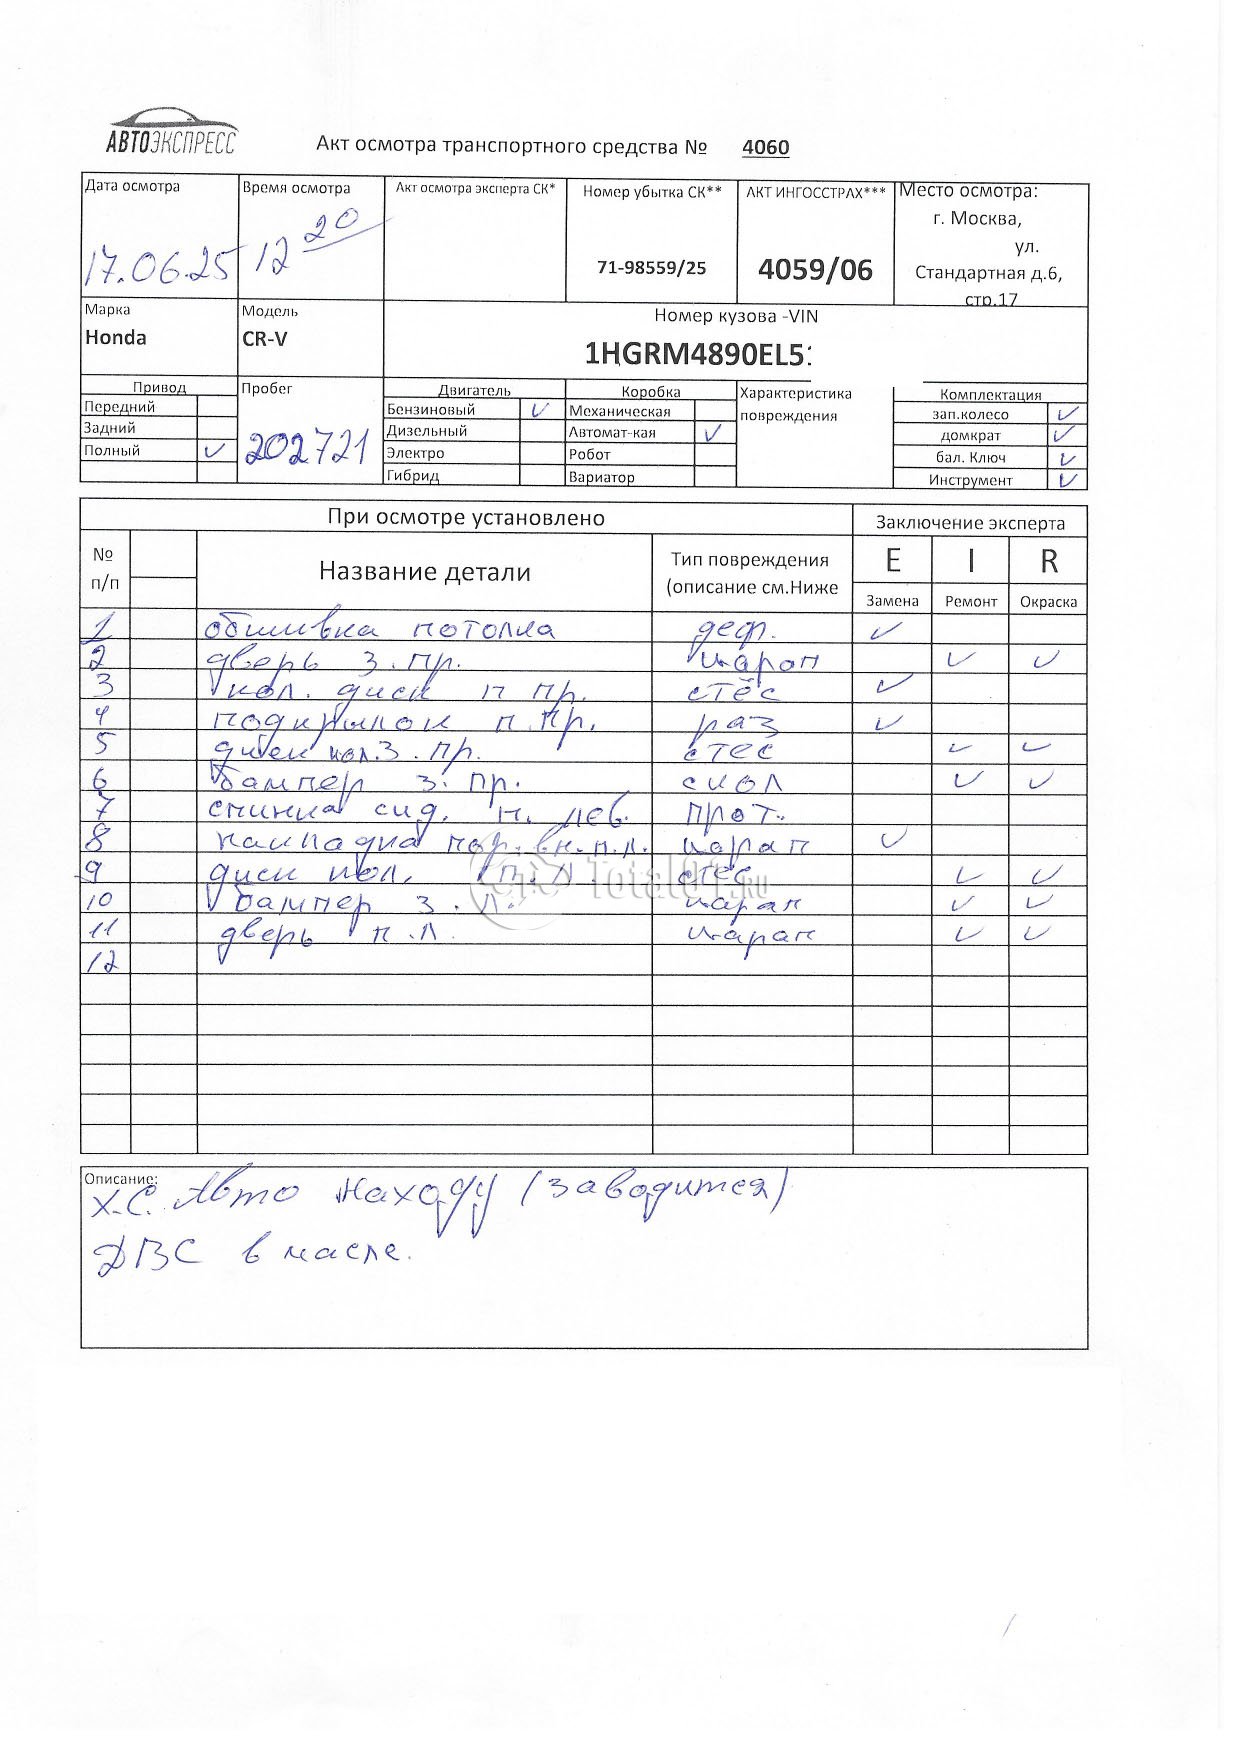 АВТОЭКСПРЕСС
Акт осмотра транспортного средства № 4060
Дата осмотра
17.06.25
Время осмотра
12 20
Акт осмотра эксперта СК*
Номер убытка СК**
71-98559/25
АКТ ИНГОССТРАХ***
4059/06
Место осмотра:
г. Москва,
ул.
Стандартная д.6,
стр.17
Марка
Honda
Модель
CR-V
Номер кузова -VIN
1HGRM4890EL5
Привод
Передний
Задний
Полный ✓
Пробег
202721
Двигатель
Бензиновый ✓
Дизельный
Электро
Гибрид
Коробка
Механическая
Автомат-кая ✓
Робот
Вариатор
Характеристика
повреждения
Комплектация
зап.колесо ✓
домкрат ✓
бал. Ключ ✓
Инструмент ✓
При осмотре установлено
Заключение эксперта
№
п/п
Название детали
Тип повреждения
(описание см.Ниже
E I R
Замена Ремонт Окраска
1 обшивка потолка деф. ✓
2 дверь з. пр. царап ✓ ✓
3 кол. диск п пр. стёс ✓
4 подкрылок п. пр. раз ✓
5 диск кол.з. пр. стес ✓ ✓
6 бампер з. пр. скол ✓ ✓
7 спинка сид. п. лев. прот.
8 накладка пор. вн. п.л. царап ✓
9 диск кол. п. л. стес ✓ ✓
10 бампер з. л. царап ✓ ✓
11 дверь п.л. царап ✓ ✓
12
Total01.RU
Описание:
Х.С. Авто на ходу (заводится)
ДВС в масле.